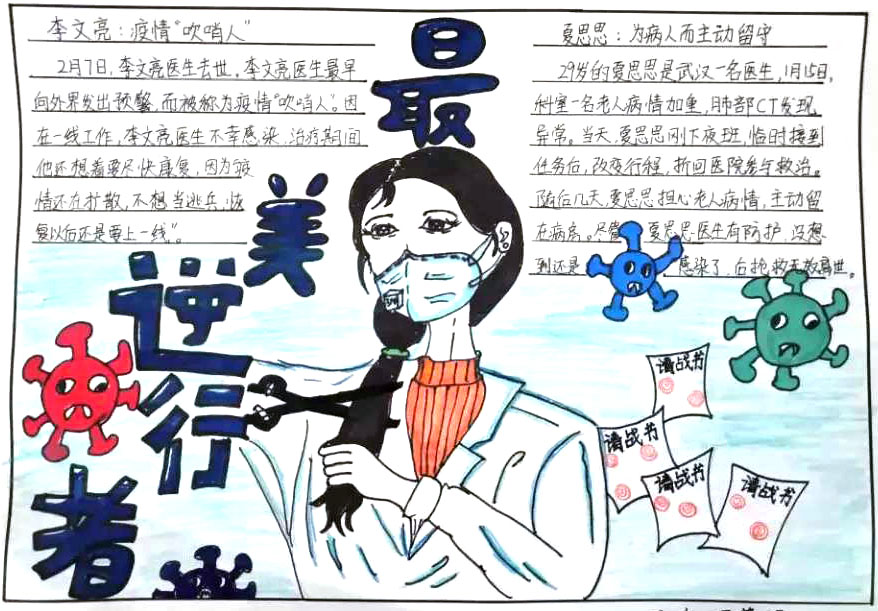 李文亮：疫情"吹哨人"
2月7日，李文亮医生去世。李文亮医生最早
向外界发出预警，而被称为疫情"吹哨人"。因
在一线工作，李文亮医生不幸感染，治疗期间
他还想着要尽快康复，因为疫
情还在扩散，不想当逃兵，恢
复以后还是要上一线"。
最
美
逆
行
者
夏思思：为病人而主动留守
29岁的夏思思是武汉一名医生，1月15日，
科室一名老人病情加重，肺部CT发现
异常。当天，夏思思刚下夜班，临时接到
任务后，改变行程，折回医院参与救治。
随后几天，夏思思担心老人病情，主动留
在病房。尽管 夏思思医生有防护，没想
到还是 感染了，后抢救无效离世。
请战书
请战书
请战书
请战书